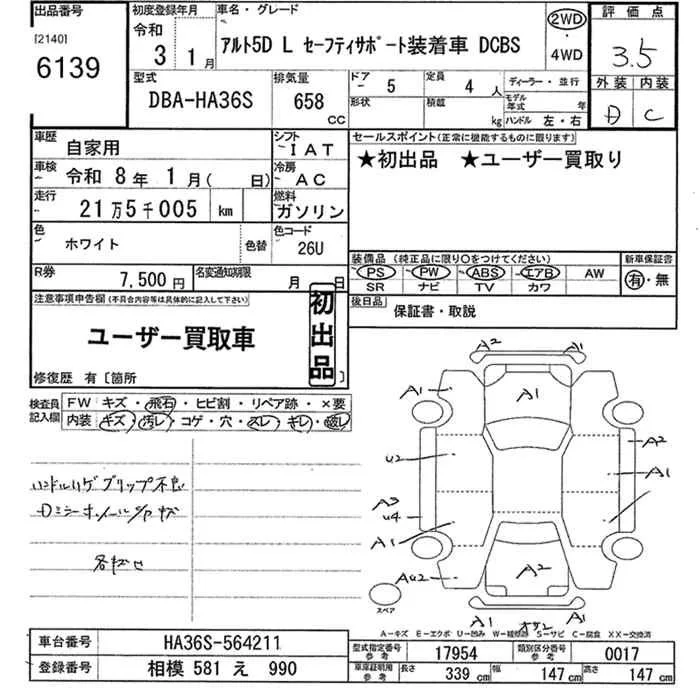 出品番号
[2140]
6139
初度登録年月
令和
3 1月
車名・グレード
アルト5D L セーフティサポート装着車 DCBS
2WD
・
4WD
評価点
3.5
外装 内装
D C
型式
DBA-HA36S
排気量
658
CC
ドア
5
定員
4人
形状
積載
kg
ディーラー・並行
モデル年式 年
ハンドル 左・右
車歴
自家用
シフト
IAT
車検
令和 8年 1月( 日)
冷房
AC
走行
21万5千005 km
燃料
ガソリン
色
ホワイト
色替
色コード
26U
R券
7,500円
名変通知期限
月 日
セールスポイント(正常に機能するものに限ります)
★初出品 ★ユーザー買取り
装備品 (純正品に限り○をつけてください)
PS PW ABS エアB AW
SR ナビ TV カワ
新車保証書
有・無
後日品
保証書・取説
注意事項申告欄(不具合内容等は具体的に記入して下さい)
ユーザー買取車
初出品
修復歴 有〔箇所 〕
検査員記入欄
FW キズ・飛石・ヒビ割・リペア跡・×要
内装 キズ・汚レ・コゲ・穴・スレ・キレ・破レ
A2
A1
A1
A1
U2
A2
A1
A3
U4
A1
A1
AU2
A2
A1
A1
スペア
A-キズ E-エクボ U-凹み W-補修跡 S-サビ C-腐食 XX-交換済
車台番号
HA36S-564211
登録番号
相模 581 え 990
型式指定番号
参考
17954
類別区分番号
参考
0017
車庫証明用
参考
長さ 339cm
幅 147cm
高さ 147cm